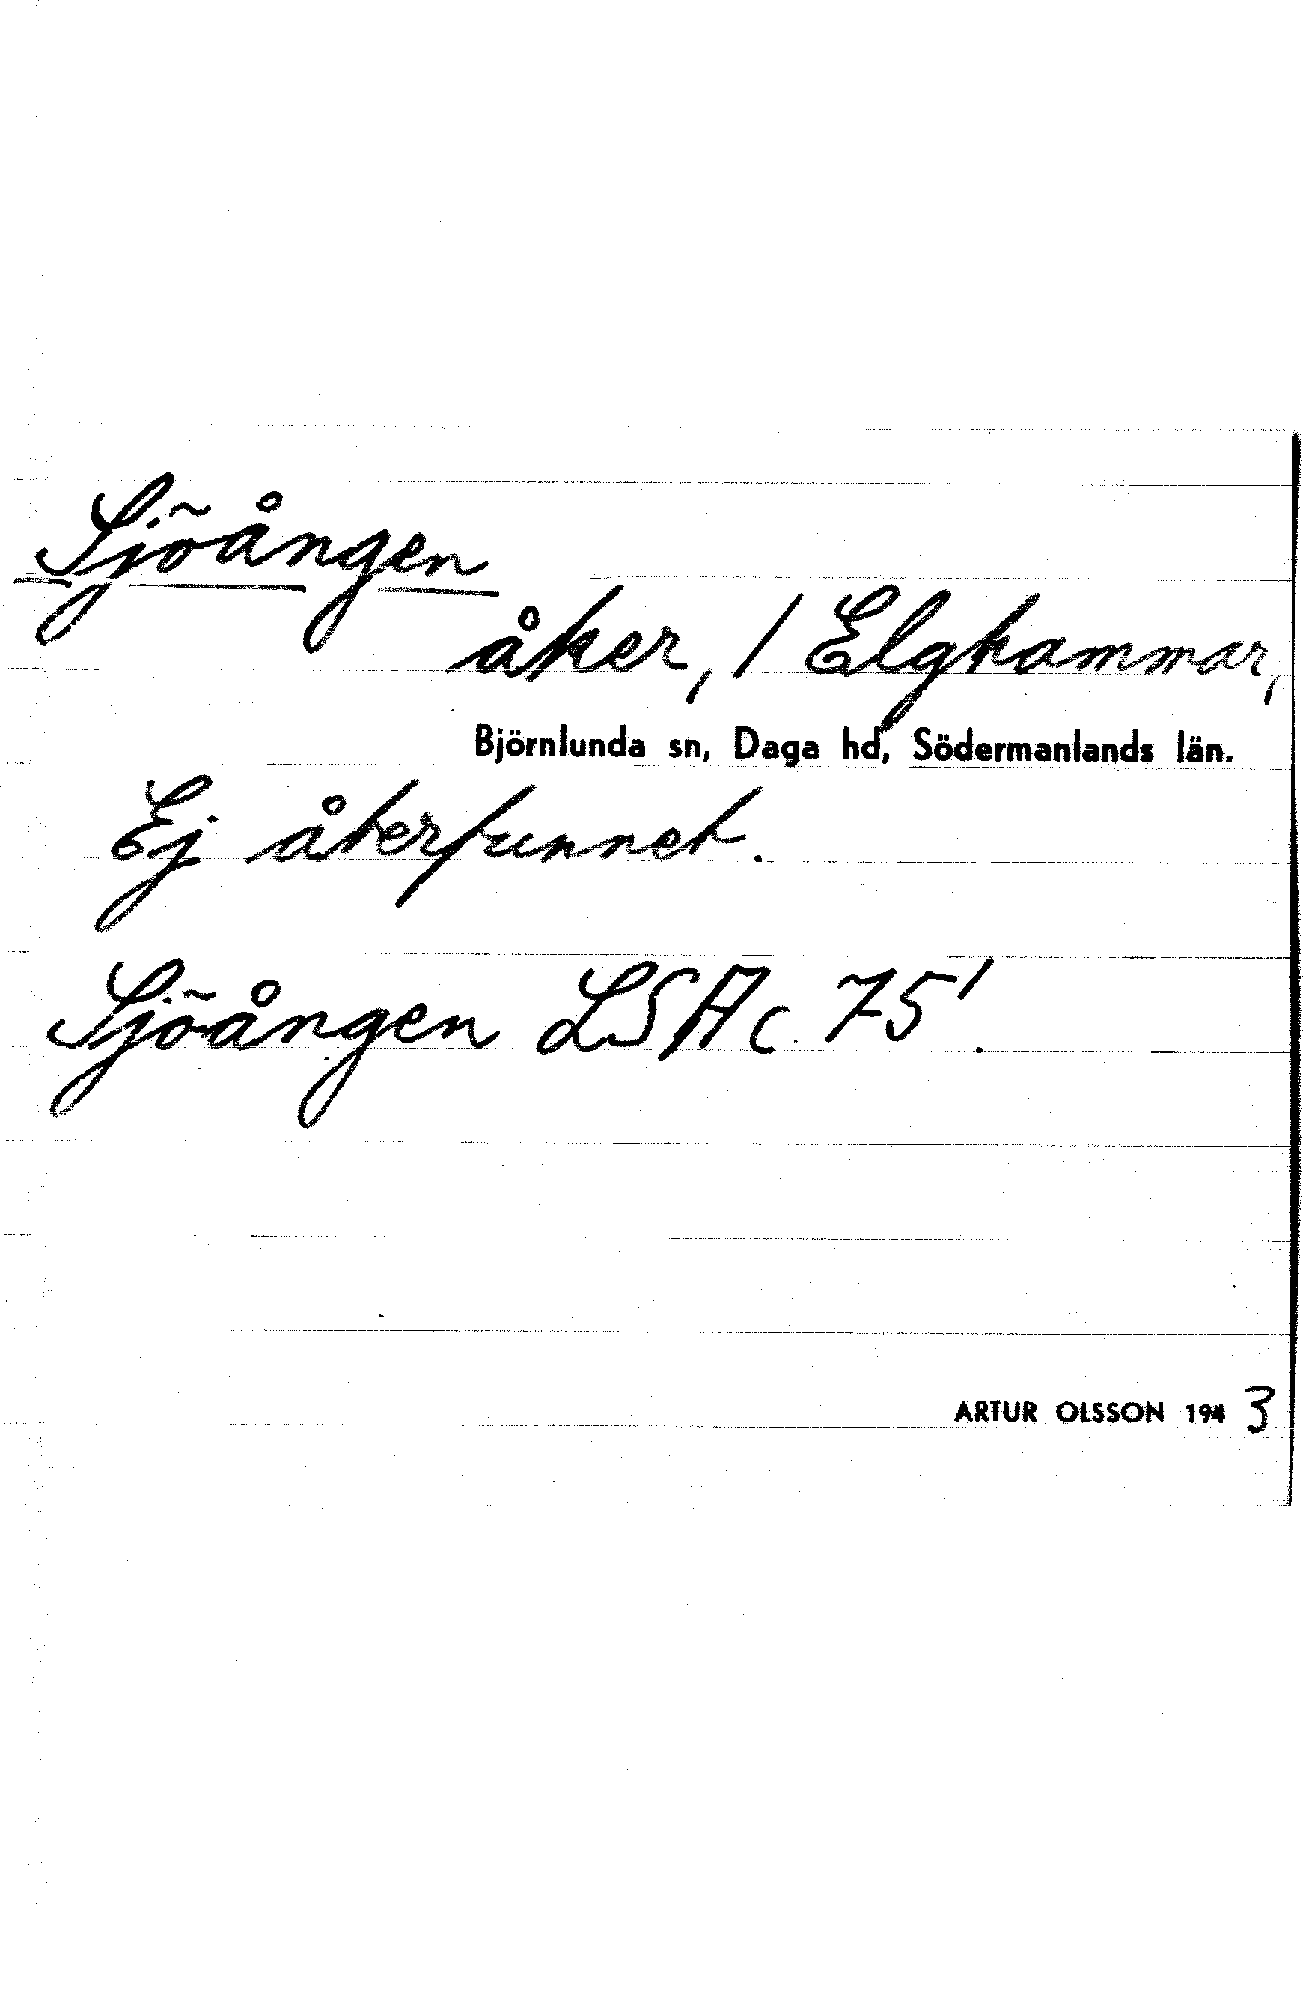 Sjöången
åker, / Elghammar,
Björnlunda sn, Daga hd, Södermanlands län.
Ej återfunnet.
Sjöången LSA c 75'.
ARTUR OLSSON 194 3